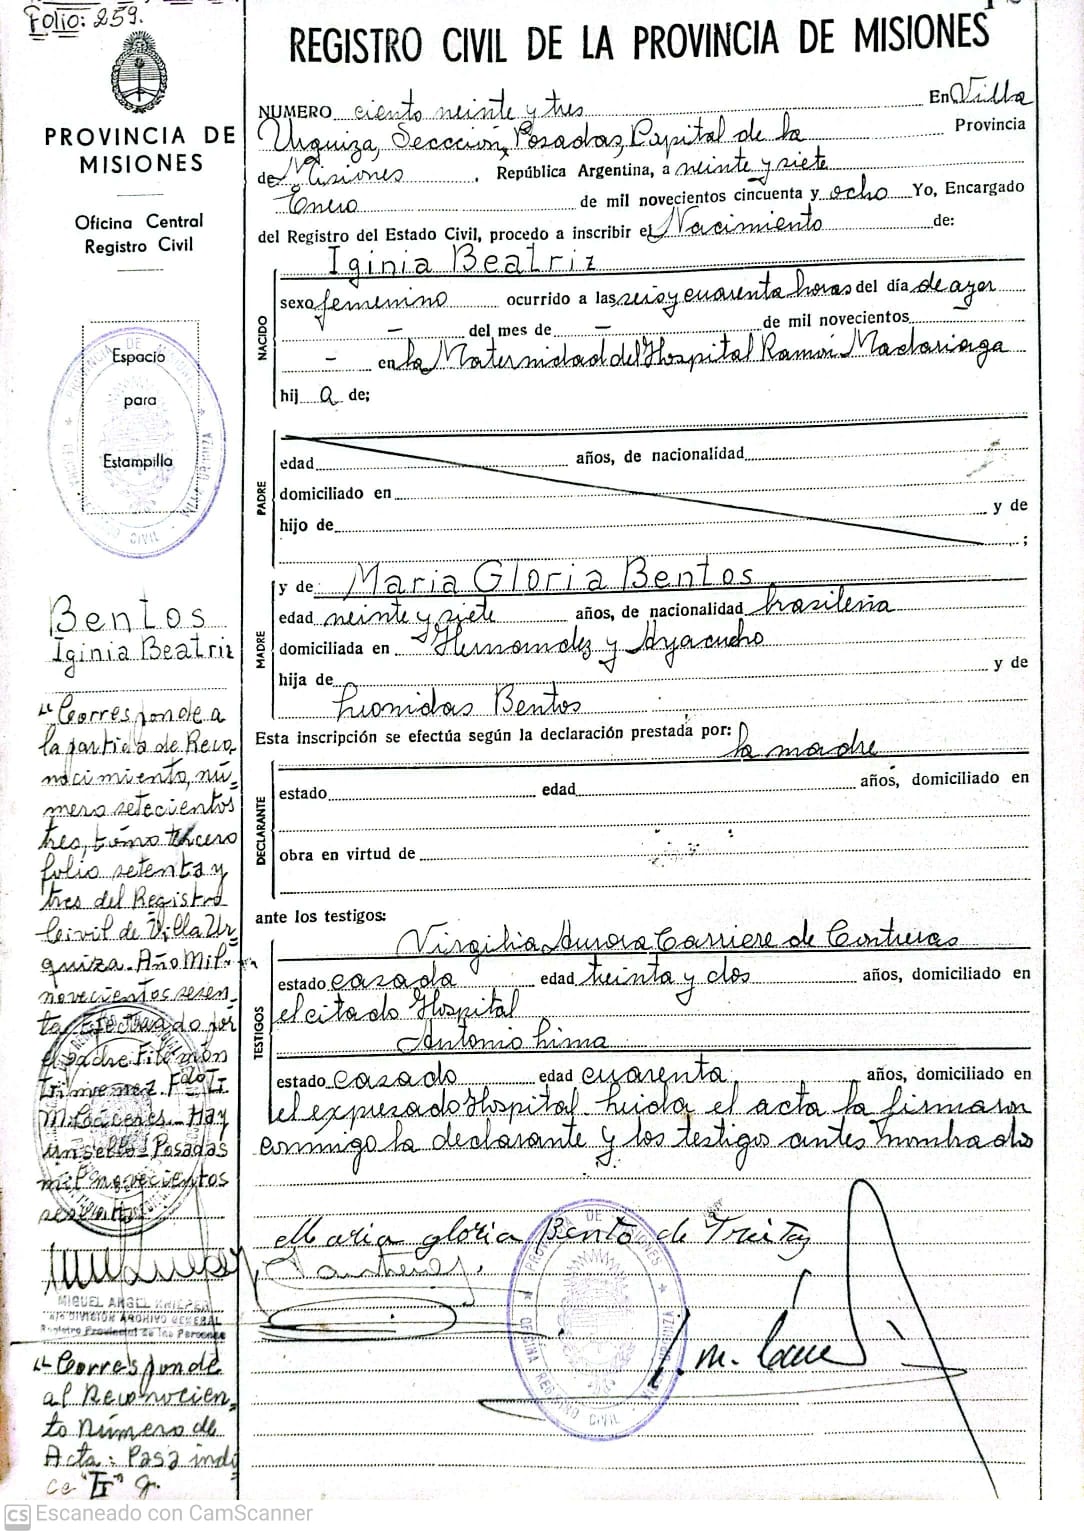 Folio: 259.
PROVINCIA DE
MISIONES
Oficina Central
Registro Civil
Espacio
para
Estampilla
REGISTRO CIVIL DE LA PROVINCIA DE MISIONES
NUMERO ciento veinte y tres En Villa
Urquiza, Seccción, Posadas, Capital de la Provincia
de Misiones, República Argentina, a veinte y siete
Enero de mil novecientos cincuenta y ocho Yo, Encargado
del Registro del Estado Civil, procedo a inscribir el Nacimiento de:
NACIDO
Iginia Beatriz
sexo femenino ocurrido a las seis y cuarenta horas del día de ayer
— del mes de — de mil novecientos
— en la Maternidad del Hospital Ramón Madariaga
hij a de;
PADRE
edad años, de nacionalidad
domiciliado en
hijo de y de
;
MADRE
y de Maria Gloria Bentos
edad veinte y siete años, de nacionalidad brasileña
domiciliada en Hernandez y Ayacucho
hija de y de
Leonidas Bentos
Esta inscripción se efectúa según la declaración prestada por: la madre
DECLARANTE
estado edad años, domiciliado en
obra en virtud de
ante los testigos:
TESTIGOS
Virgilia Aurora Carriere de Contreras
estado casada edad treinta y dos años, domiciliado en
el citado Hospital
Antonio Lima
estado casado edad cuarenta años, domiciliado en
el expresado Hospital. Leida el acta la firmaron
conmigo la declarante y los testigos antes nombrados
Maria gloria Bento de
Bentos
Iginia Beatriz
"Corresponde a
la partida de Reco-
nocimiento, nú-
mero setecientos
tres, tomo tercero
folio setenta y
tres del Registro
Civil de Villa Ur-
quiza. Año Mil
novecientos sesen-
ta. Efectuado por
el padre Filemón
Gimenez. Fdo I.
M. Cáceres. Hay
un sello. Posadas
mil novecientos
sesenta
MIGUEL ANGEL
DIVISION ARCHIVO GENERAL
Registro Provincial de las Personas
"Corresponde
al Reconocien-
to Número de
Acta: Pasa indi
ce "G"
PROVINCIA DE MISIONES
OFICINA REGISTRO CIVIL
CS Escaneado con CamScanner